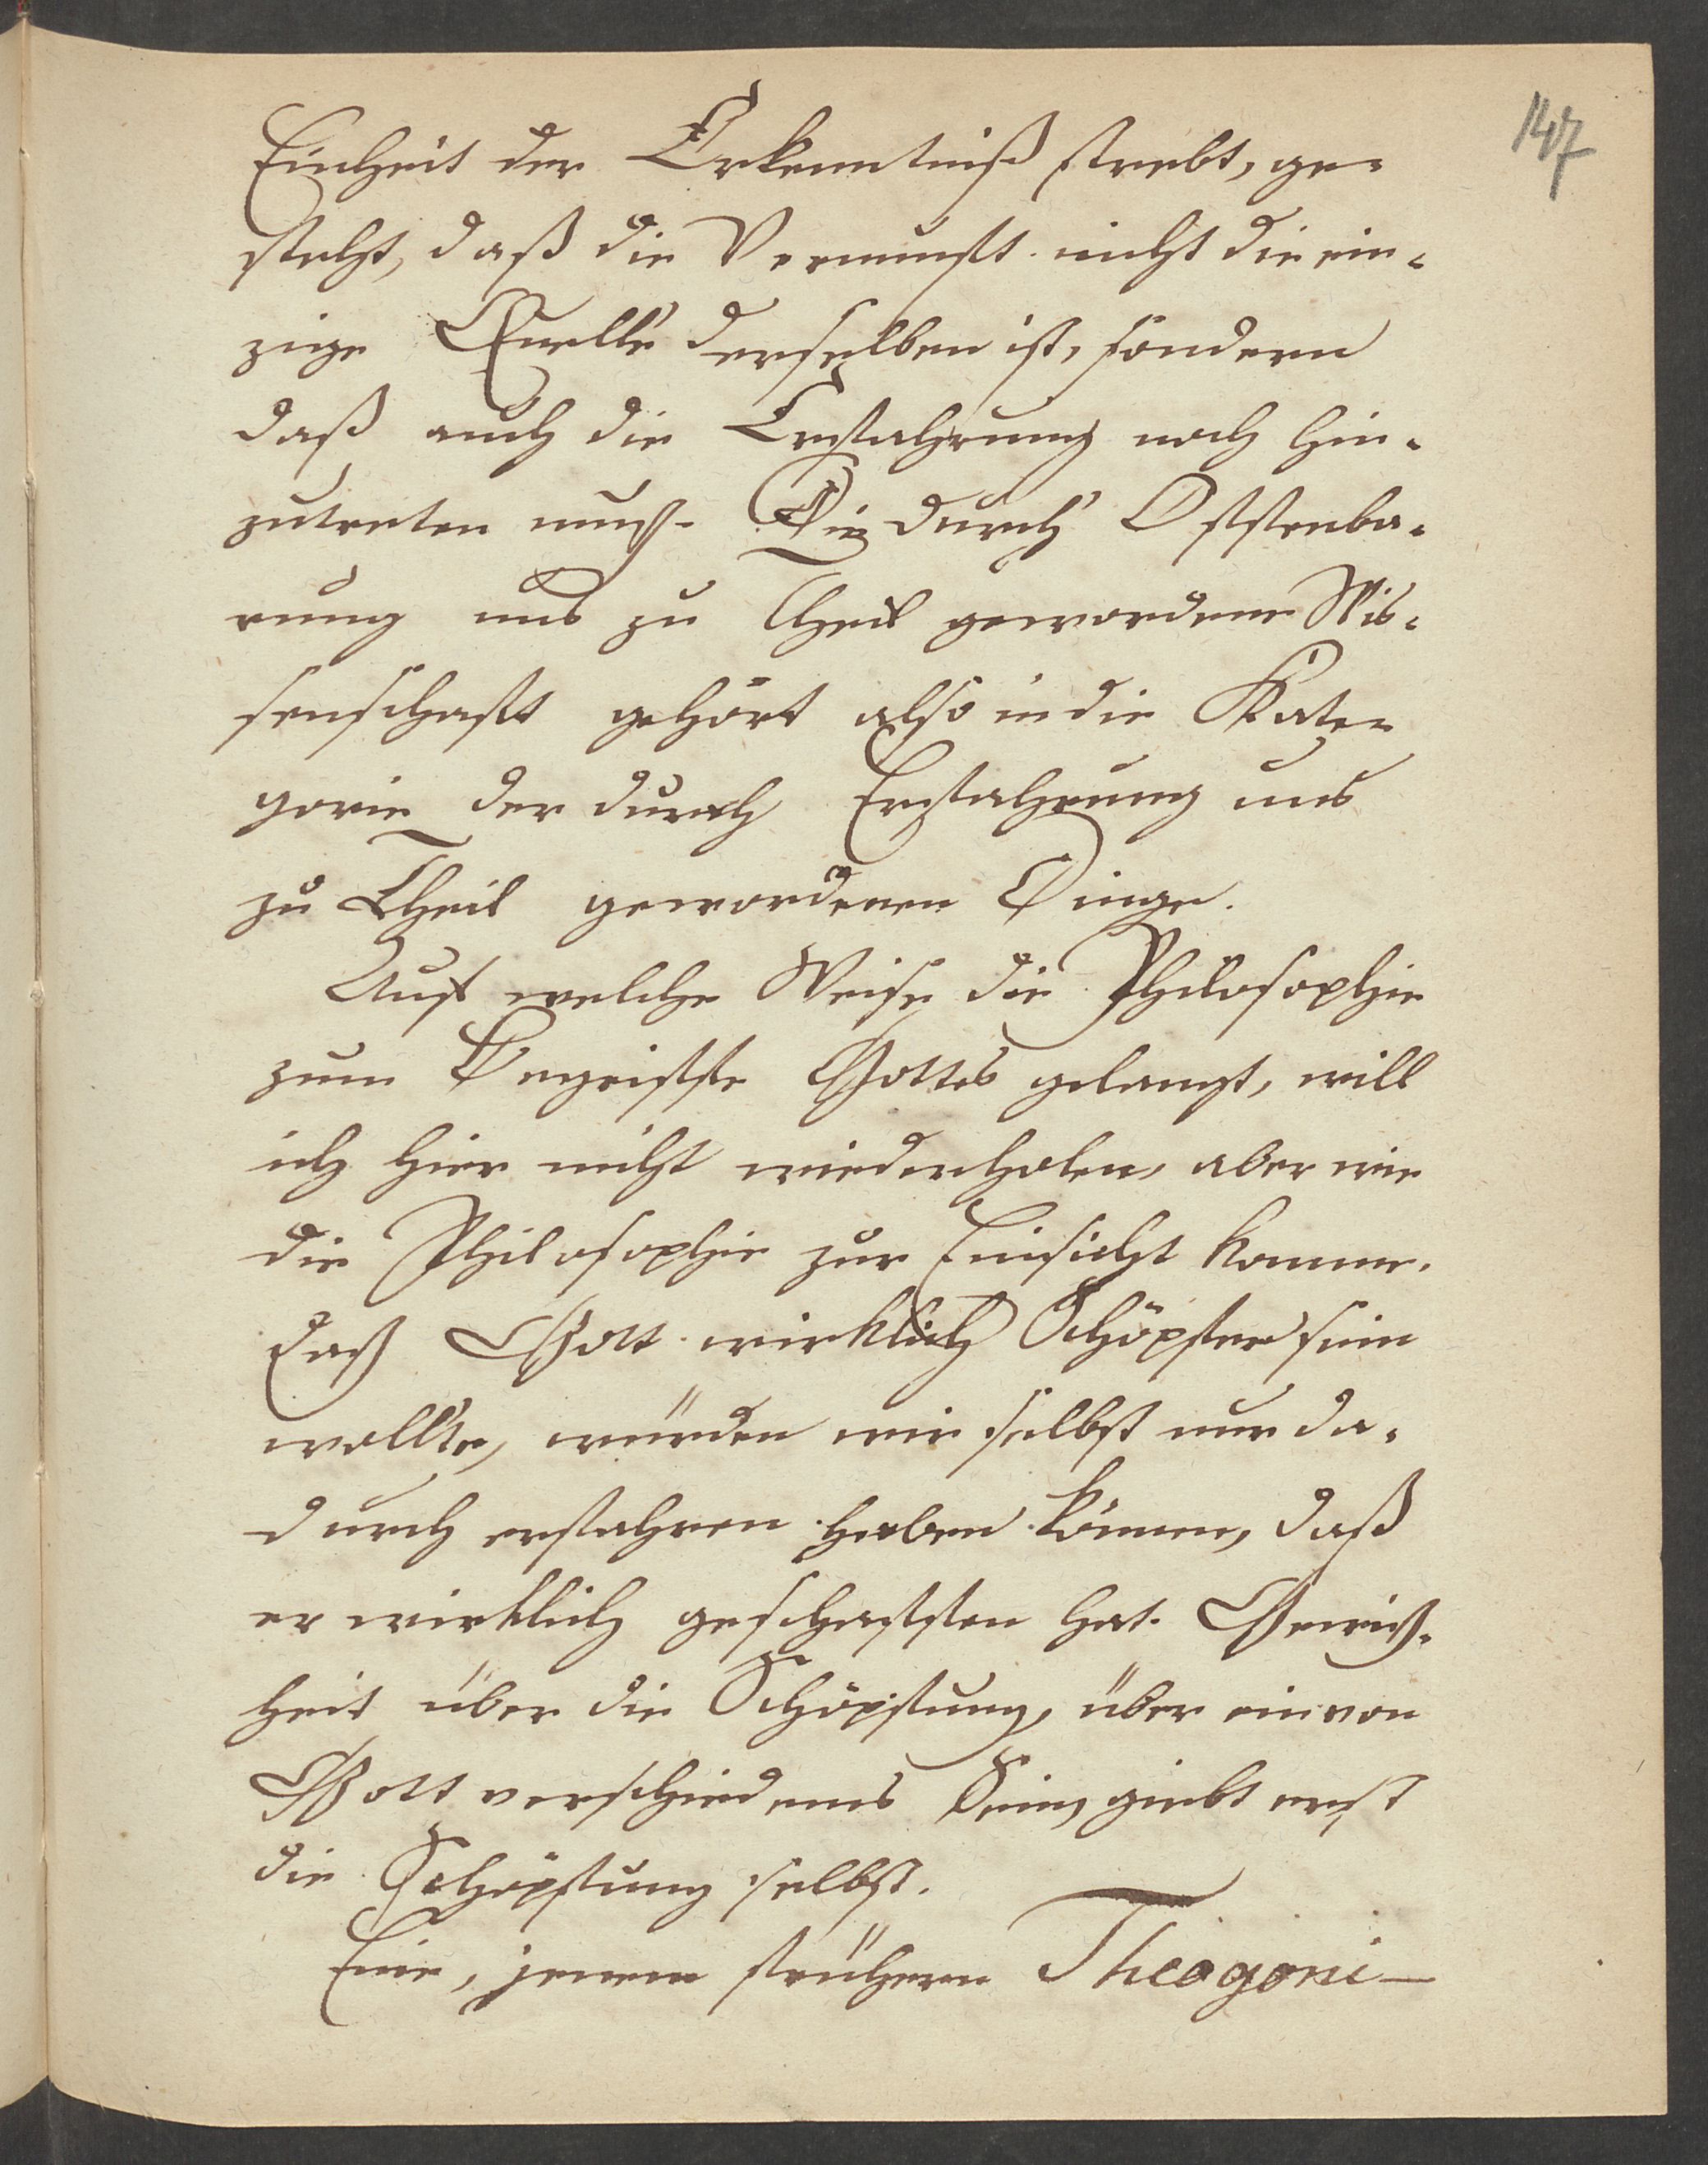 147
Einheit der Erkenntniß strebt, ge-
steht, daß die Vernunft nicht die ein-
zige Quelle derselben ist, sondern
daß auch die Erfahrung noch hin-
zutreten muß. Die durch Offenba-
rung uns zu Theil gewordene Wis-
senschaft gehört also in die Kate-
gorie der durch Erfahrung uns
zu Theil gewordenen Dinge.
Auf welche Weise die Philosophie
zum Begriffe Gottes gelangt, will
ich hier nicht wiederholen, aber wie
die Philosophie zur Einsicht komme.
daß Gott wirklich Schöpfer sein
wollte, würden wir selbst nur da-
durch erfahren haben können, daß
er wirklich geschaffen hat. Gewiß-
heit über die Schöpfung, über ein von
Gott verschiedenes Sein, giebt erst
die Schöpfung selbst.
Eine, jenem frühern Theogoni-